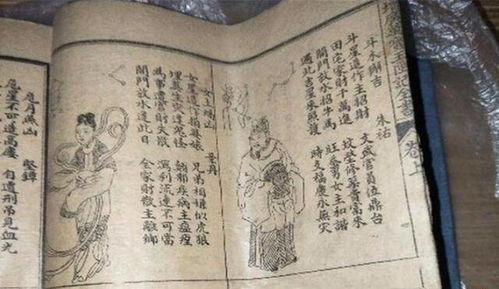 斗木獬吉 朱祐
斗星造作主招財 文武官員位鼎台
田宅家財千萬進 墳塋修築貴富來
開門放水招牛馬 旺蚕男女主和諧
遇此吉星來照護 時支福慶永無灾
女土蝠凶 景丹
女星造作損婆娘 兄弟相嫌似虎狼
埋葬生灾逢鬼怪 顛邪疾病主瘟
為事遭官財失散 瀉利流連不可當
開門放水逢此日 全家財散主離鄉
危月燕凶 堅鐔
危星不可造高 自遣刑吊見血光